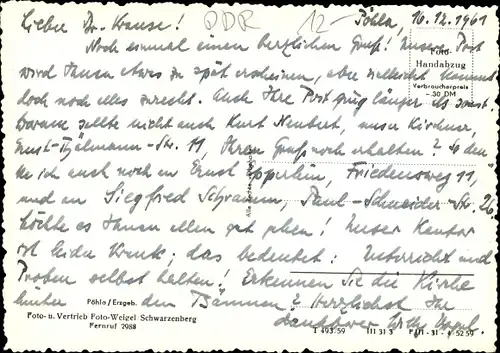 Lieber Dr. Krause!
DDR
12-
Pöhla, 10.12.1961
Noch einmal einen herzlichen Gruß! Unsere Post
wird Ihnen etwas zu spät erscheinen, aber vielleicht kommt
doch noch alles zurecht. Auch Ihre Post ging länger als sonst.
Warum sollte nicht auch Kurt Neubert, unser Kirchner,
Ernst-Thälmann-Str. 11, Ihren Gruß noch erhalten? So den-
ke ich auch noch an Ernst Epperlein, Friedensweg 11,
und an Siegfred Schramm, Paul-Schneider-Str. 26
Möchte es Ihnen allen gut gehen! Unser Kantor
ist leider krank, das bedeutet: Unterricht und
Proben selbst halten! Erkennen Sie die Kirche
hinter den Bäumen? Herzlichst Ihr
dankbarer
Foto-
Handabzug
Verbraucherpreis
-.30 DM
Pöhla / Erzgeb.
Foto- u. Vertrieb Foto-Weigel Schwarzenberg
Fernruf 2988
T 493/59 III 31 3 P II-31